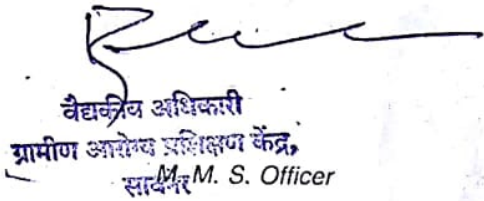 वैद्यकीय अधिकारी
ग्रामीण आरोग्य प्रशिक्षण केंद्र,
सावनेर
M. M. S. Officer